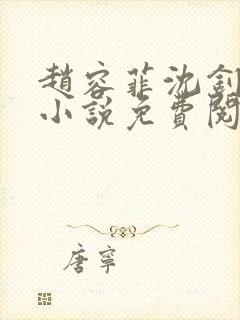 趙容菲沈釗
小說免費閱
唐寧